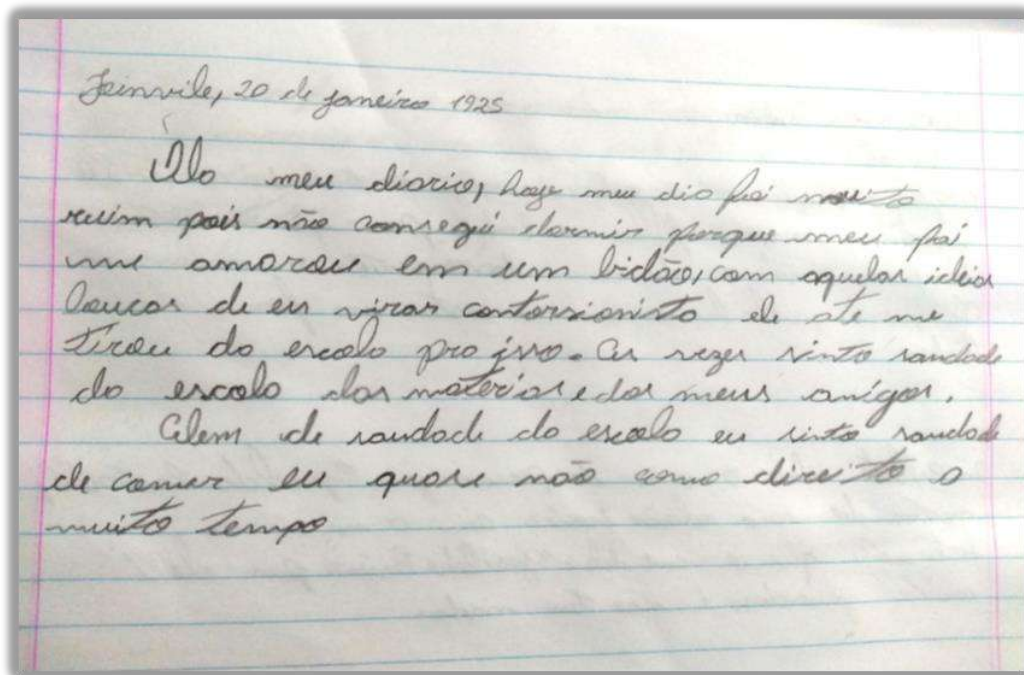 Joinvile, 20 de janeiro 1925
Olo meu diario, hoje meu dia foi muito
ruim pois não consegui dormir porque meu pai
me amarou em um bidão, com aquelas ideias
loucas de eu virar contorsionista ele ate me
tirou da escola pro isso. As vezes sinto saudade
da escola das materias e dos meus amigos.
Alem de saudade da escola eu sinto saudade
de comer eu quase não como direito a
muito tempo